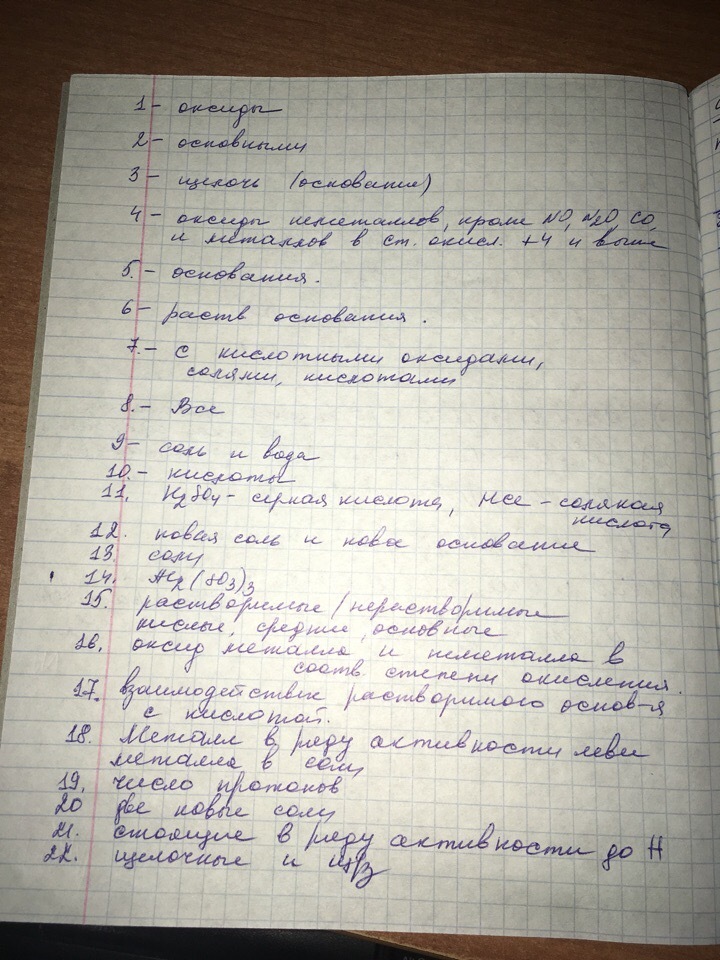 1- оксиды
2- основными
3- щелочь (основание)
4- оксиды неметаллов, кроме NO, N2O, CO,
и металлов в ст. окисл. +4 и выше
5.- основания.
6- раств основания.
7.- с кислотными оксидами,
солями, кислотами
8.- Все
9- соль и вода
10.- кислоты
11. H2SO4 - серная кислота, HCl - соляная
кислота
12. новая соль и новое основание
13. соли
14. Al2(SO3)3
15. растворимые/нерастворимые
кислые, средние, основные
16. оксид металла и неметалла в
соотв. степени окисления.
17. взаимодействие растворимого основ-я
с кислотой.
18. Металл в ряду активности левее
металла в соли
19. число протонов
20 две новые соли
21. стоящие в ряду активности до H
22. щелочные и щ/з